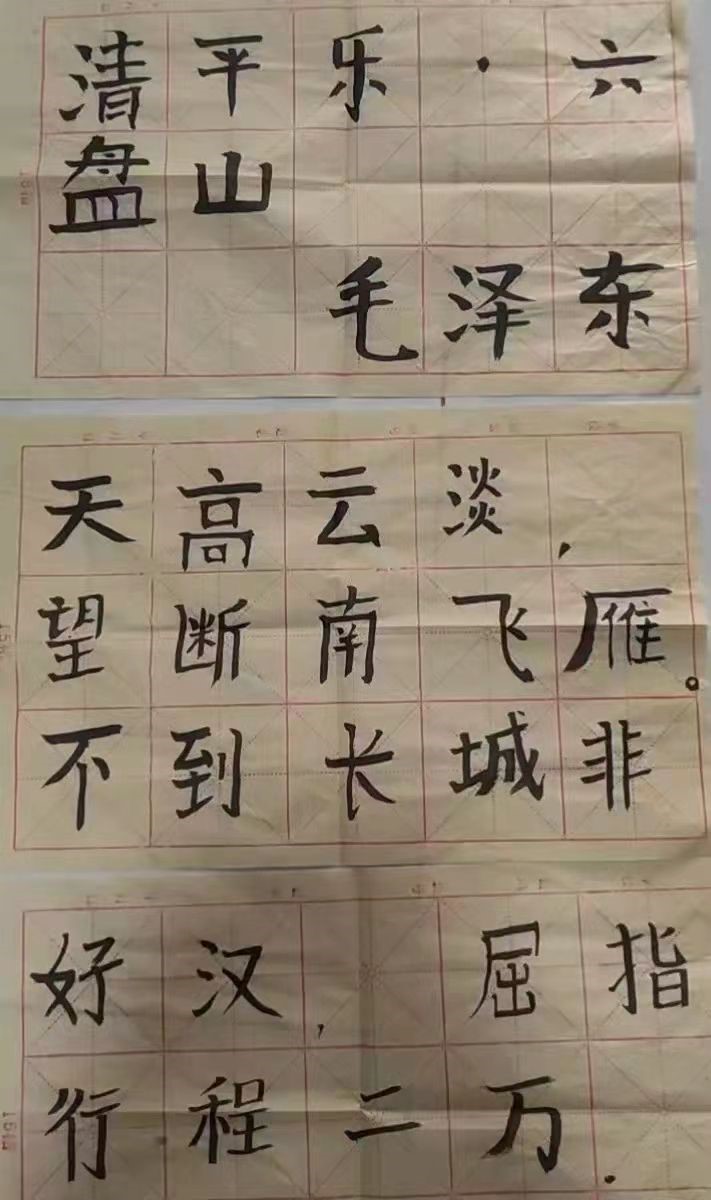 清平乐·六
盘山
毛泽东
天高云淡，
望断南飞雁。
不到长城非
好汉，屈指
行程二万.